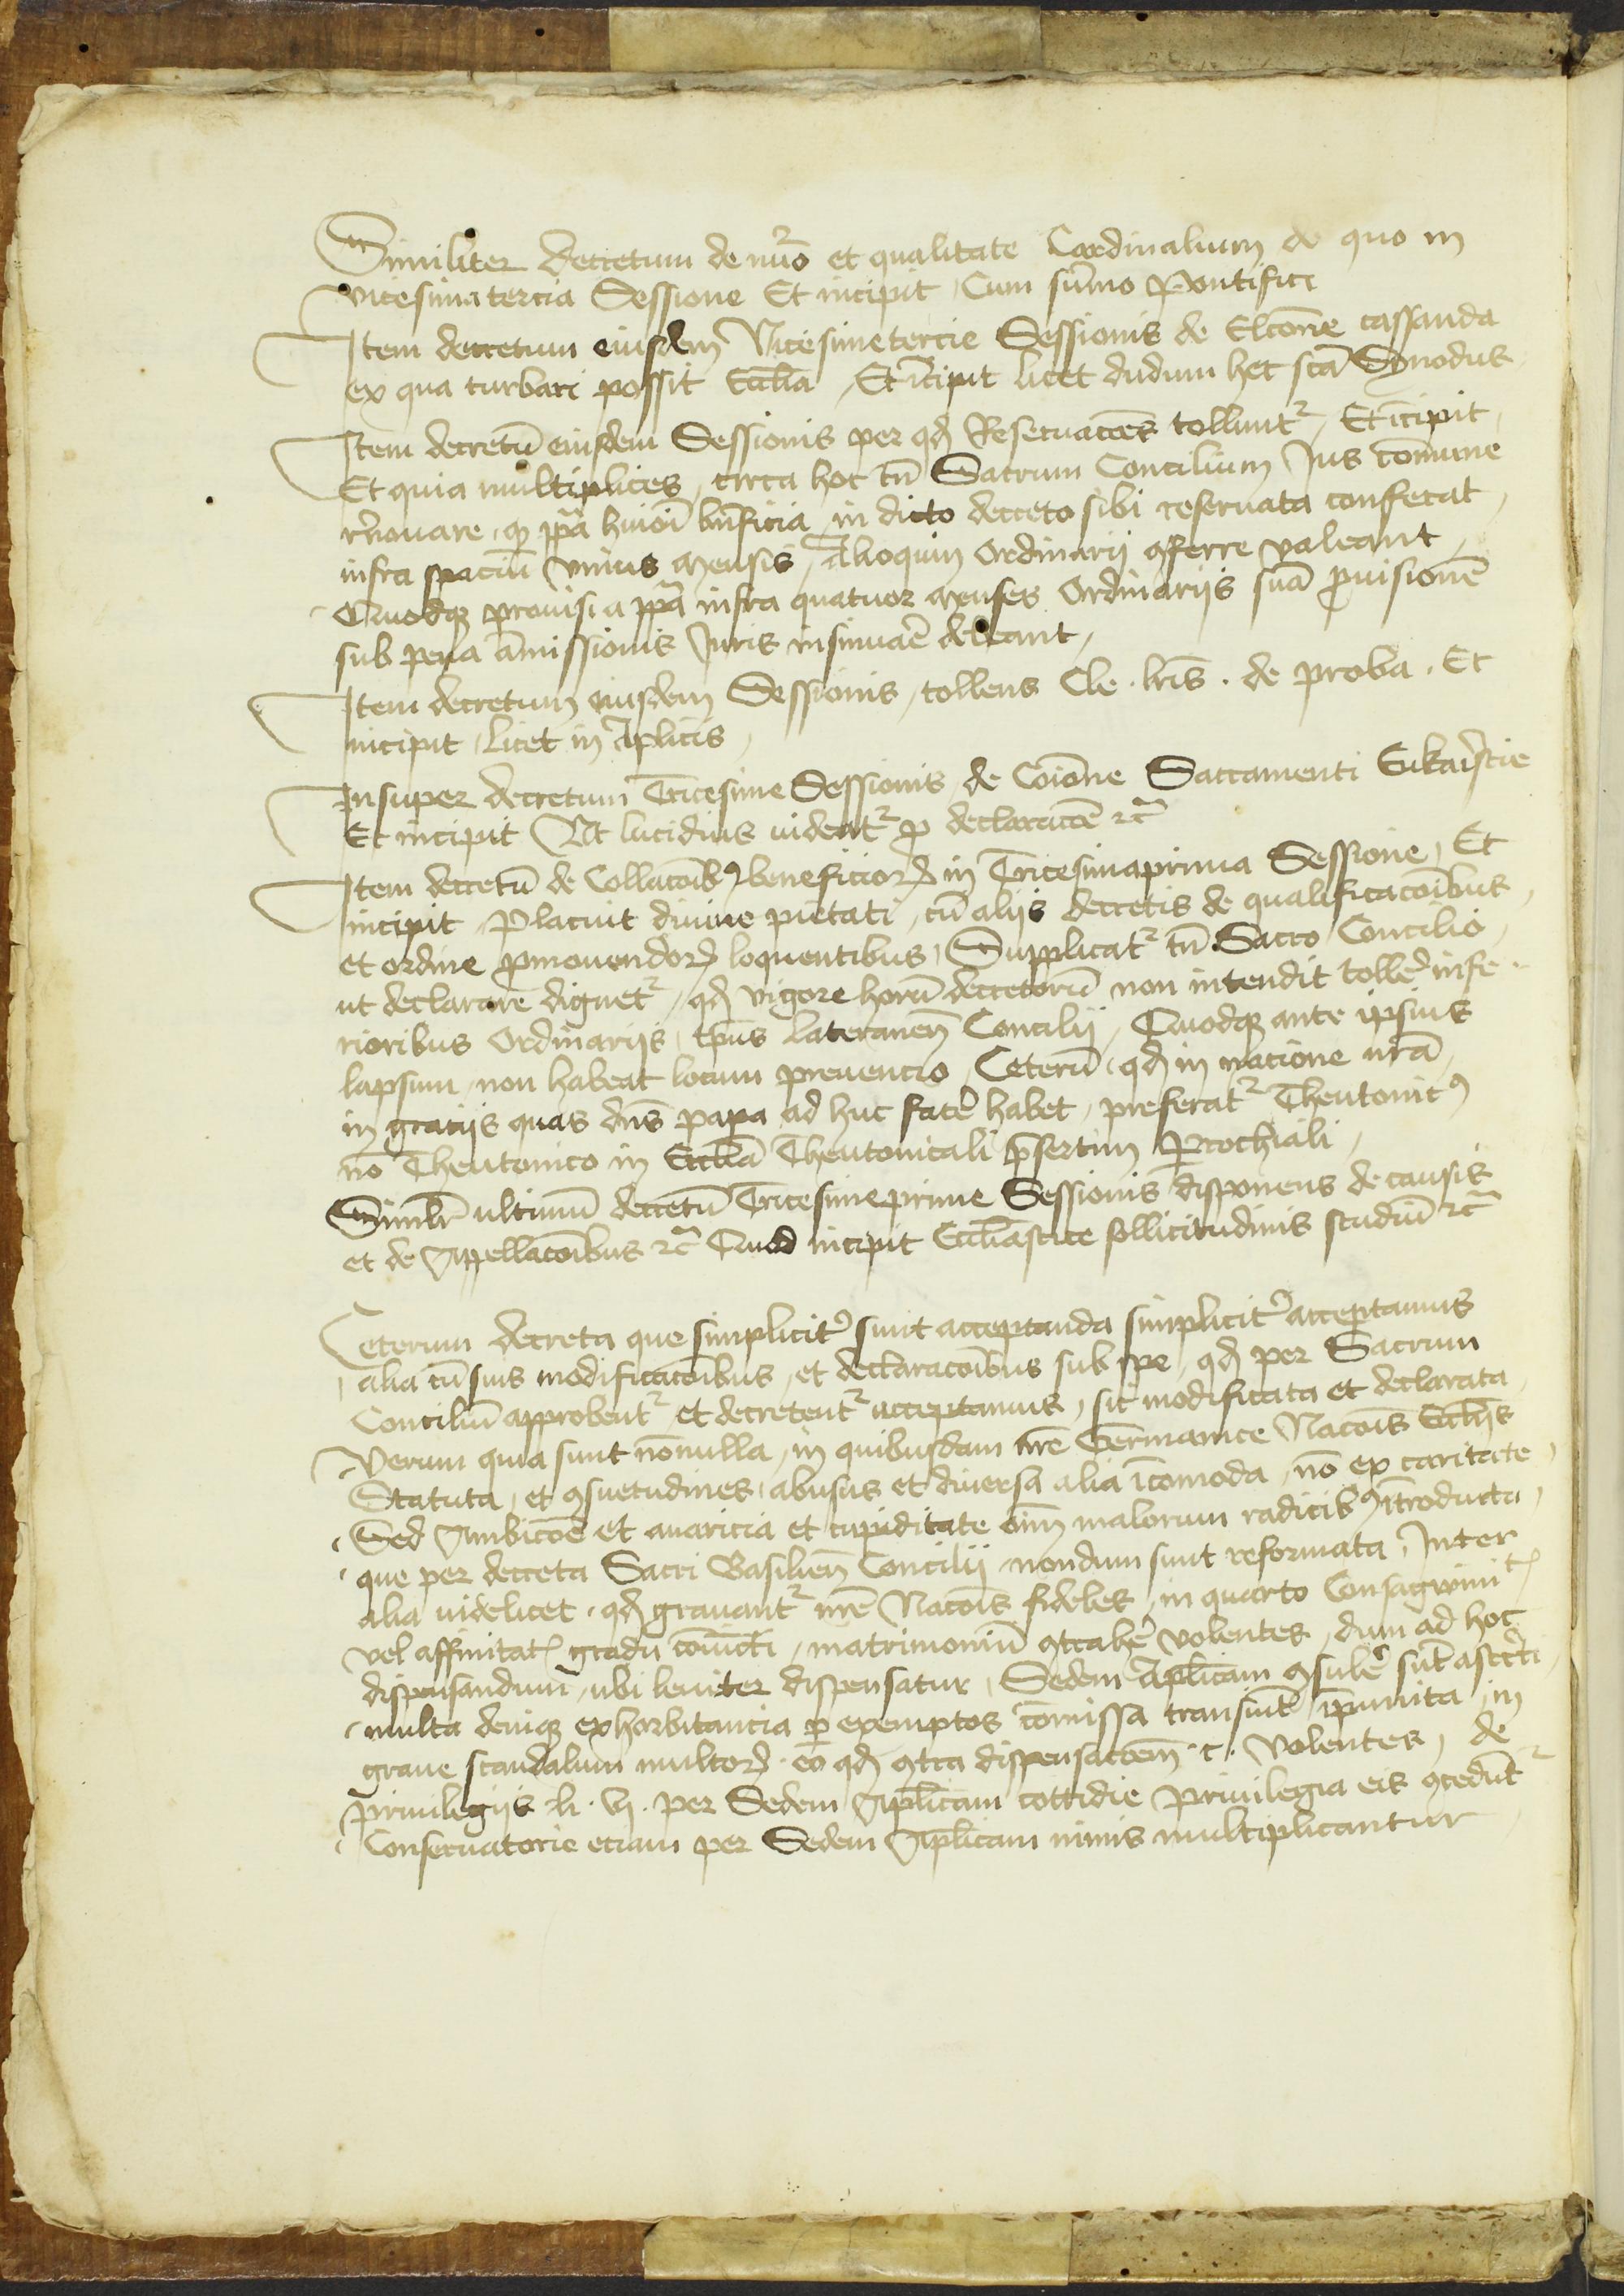 Similiter decretum de nūo et qualitate Cardinalium de quo in
vicesimatercia Sessione Et incipit, Cum sūmo Pontifici
Item decretum eiusdem Vicesimetercie Sessionis de Elcōne cassanda
ex qua turbari possit Eccl̄ia, Et īcipit licet dudum hec scā Synodus
Item decretū eiusdem Sessionis per qd Reseruacōes tollunt², Et īcipit
Et quia multiplices, circa hoc tn̄ Sacrum Concilium Jus cōmune
r̄nouare, qͥ ppā huiōi bn̄ficia, in dicto decreto sibi reseruata conferat
infra spaciū vnius Mensis, Alioquin Ordinarij ꝯferre valeant,
Quodqꝫ prouisi a ppā infra quatuor Menses Ordinarijs suā ꝓuisionē
sub pena āmissionis Juris insinuāe debeant,
Item decretum eiusdem Sessionis, tollens Cle. lr̄is. de proba. Et
incipit, Licet in Aplicis,
Insuper decretum Tricesime Sessionis de Coīone Sacramenti Eukaristie
Et incipit Vt lucidius uideat² ꝓ declaracōe ⁊c̄
Item decretū de Collacōibꝫ beneficioꝝ in Tricesimaprima Sessione, Et
incipit, Placuit diuine pietati, cū alijs decretis de qualificacōibus
et ordine ꝓmouendoꝝ loquentibus, Supplicat² tn̄ Sacro Concilio,
ut declarare dignet², qd vigore horū decretorū non intendit tolle͛ infe-
rioribus Ordinarijs, tp̄us Lateranen̄ Concilij, Quodqꝫ ante ipsius
lapsum, non habeat locum preuencio, Ceterū, qd in nacione nr̄a,
in gracijs quas dn̄s papa ad huc face͛ habet, preferat² Theutonicꝰ
nō Theutonico in Eccl̄ia Theutonicali p̄sertim Prochiali,
Simlr̄ ultimū decretū Tricesimeprime Sessionis disponens de causis
et de Appellacōibus ⁊c̄ Quod incipit Eccl̄iastice sollicitudinis studiū ⁊c̄
Ceterum decreta que simplicit͛ sunt acceptanda simplicit͛ acceptamus
alia cū suis modificacōibus, et declaracōibus sub spe, qd per Sacrum
Conciliū approbent² et decretent² acceptamus, sic modificata et declarata,
Verum quia sunt nōnulla, in quibusdam nr̄e Germanice Nacōis Eccl̄ijs
Statuta, et ꝯsuetudines, abusus et diuersa alia īcomoda, nō ex caritate,
Sed Ambicōe et auaricia et cupiditate oīm malorum radicibꝫ ītroducta,
que per decreta Sacri Basilien̄ Concilij nondum sunt reformata, Inter
alia uidelicet, qd grauant² nr̄e Nacōis fideles, in quarto Consagwinit͛
vel affinitat͛ gradu cōiūcti, matrimoniū ꝯtrahe͛ volentes, dum ad hoc
dispensandum, ubi leuiter dispensatur, Sedem Aplicam ꝯsule͛ sūt astrcti,
multa deniqꝫ exhorbitancia ꝑ exemptos cōmissa transiūt īpunita, in
graue scandalum multoꝝ, eo qd ꝯtra dispensacōem .c. Volentes, de
priuilegijs li. vj. per Sedem Aplicam cottidie priuilegia eis ꝯcedūt²
Conseruatorie eciam per Sedem Aplicam nimis multiplicantur